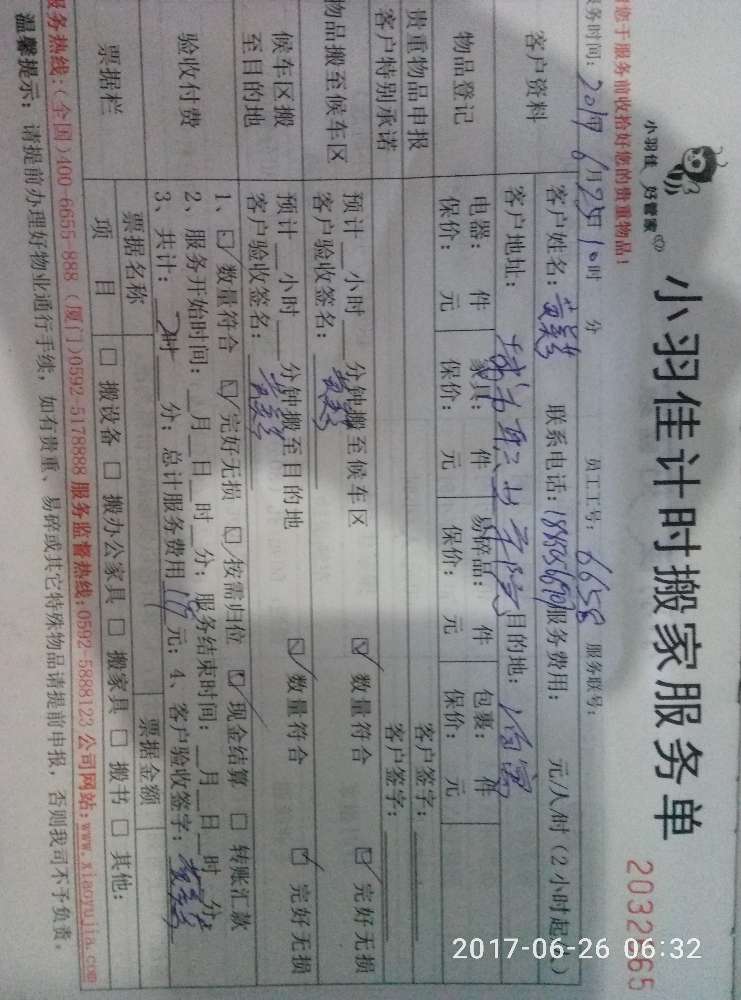 小羽佳 好管家
小羽佳计时搬家服务单
2032965
您于服务前收拾好您的贵重物品！
服务时间：2017年6月25日10时 分 员工工号：6658 服务联号：
客户资料
客户姓名： 联系电话： 服务费用： 元/人/时（2小时起
客户地址：城市职业学院 目的地：
物品登记
电器： 件 家具： 件 易碎品： 件 包裹： 件
保价： 元 保价： 元 保价： 元 保价： 元
贵重物品申报 客户签字：
客户特别承诺 客户签字：
物品搬至候车区
预计 小时 分钟搬至候车区 ☑ 数量符合 ☑ 完好无损
客户验收签名：
候车区搬至目的地
预计 小时 分钟搬至目的地 ☑ 数量符合 ☑ 完好无损
客户验收签名：
验收付费
1、☑ 数量符合 ☑ 完好无损 ☑ 按需归位 ☑ 现金结算 □ 转账汇款
2、服务开始时间： 月 日 时 分；服务结束时间： 月 日 时 分
3、共计：2时 分；总计服务费用 元；4、客户验收签字：
票据栏
票据名称 票据金额
项目 □ 搬设备 □ 搬办公家具 □ 搬家具 □ 搬书 □ 其他：
服务热线：（全国）400-6655-888（厦门）0592-5178888 服务监督热线：0592-5888123 公司网站：www.xiaoyujia.com
温馨提示：请提前办理好物业通行手续，如有贵重、易碎或其它特殊物品请提前申报，否则我司不予负责。
2017-06-26 06:32